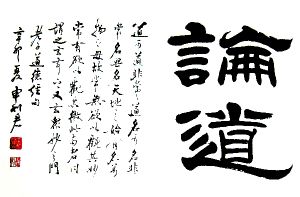 論道
道可道非常道名可名非
常名無名天地之始有名萬
物之母故常無欲以觀其妙
常有欲以觀其徼此兩者同
謂之玄玄之又玄衆妙之門
老子道德經句
辛卯夏